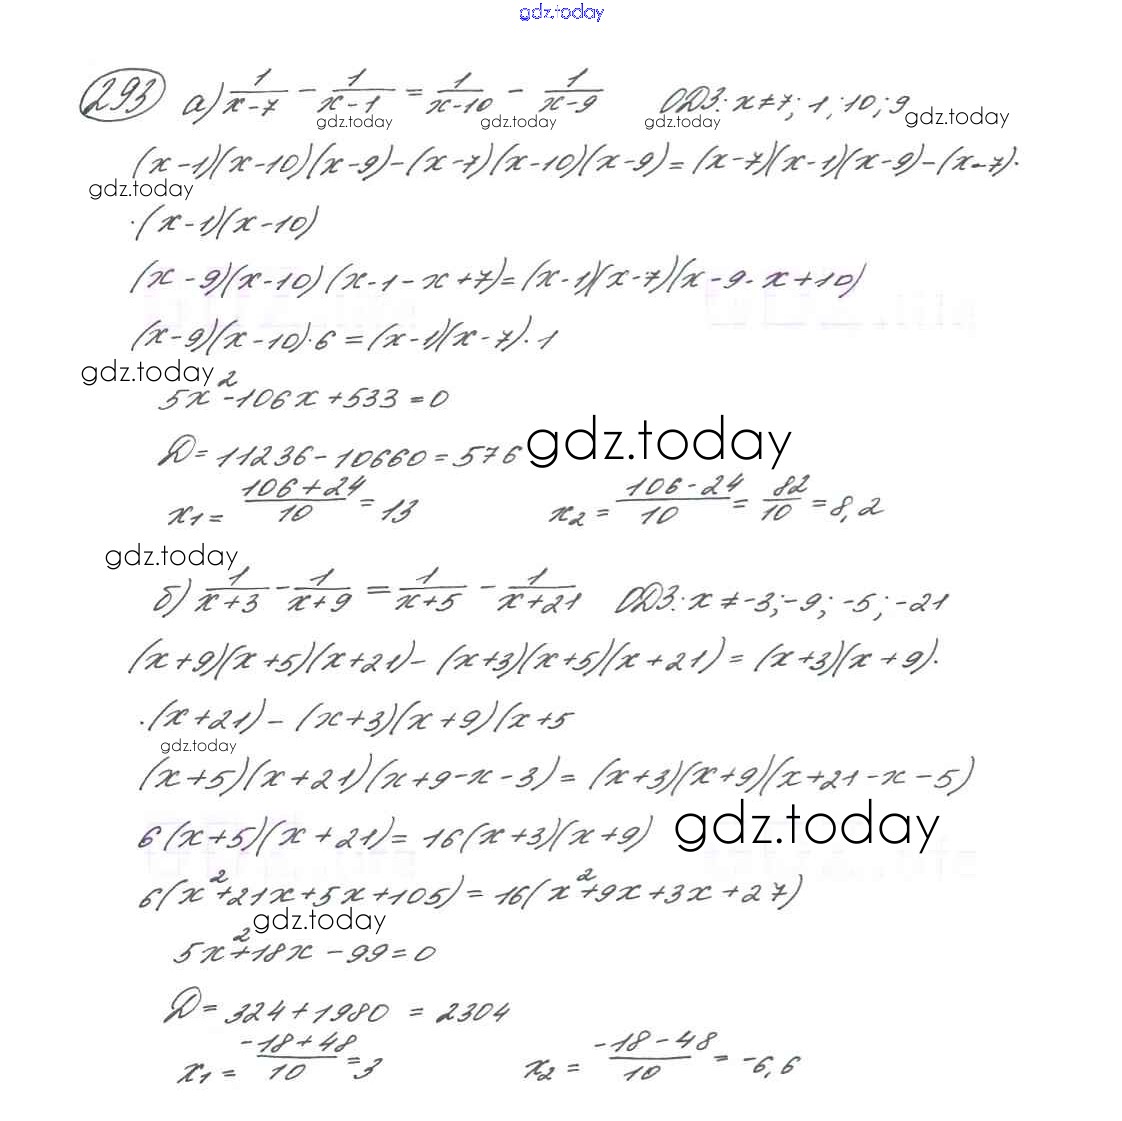 gdz.today
293 а) 1/(x-7) - 1/(x-1) = 1/(x-10) - 1/(x-9) ОДЗ: x≠7; 1; 10; 9
gdz.today gdz.today gdz.today gdz.today
(x-1)(x-10)(x-9)-(x-7)(x-10)(x-9)=(x-7)(x-1)(x-9)-(x-7)·
gdz.today
·(x-1)(x-10)
(x-9)(x-10)(x-1-x+7)=(x-1)(x-7)(x-9-x+10)
(x-9)(x-10)·6=(x-1)(x-7)·1
gdz.today
5x²-106x+533=0
Д=11236-10660=576
gdz.today
x₁= (106+24)/10 =13 x₂= (106-24)/10 = 82/10 =8,2
gdz.today
б) 1/(x+3) - 1/(x+9) = 1/(x+5) - 1/(x+21) ОДЗ: x≠-3;-9; -5; -21
(x+9)(x+5)(x+21)-(x+3)(x+5)(x+21)=(x+3)(x+9)·
·(x+21)-(x+3)(x+9)(x+5
gdz.today
(x+5)(x+21)(x+9-x-3)=(x+3)(x+9)(x+21-x-5)
6(x+5)(x+21)=16(x+3)(x+9)
gdz.today
6(x²+21x+5x+105)=16(x²+9x+3x+27)
gdz.today
5x²+18x-99=0
Д=324+1980=2304
x₁= (-18+48)/10 =3 x₂= (-18-48)/10 =-6,6